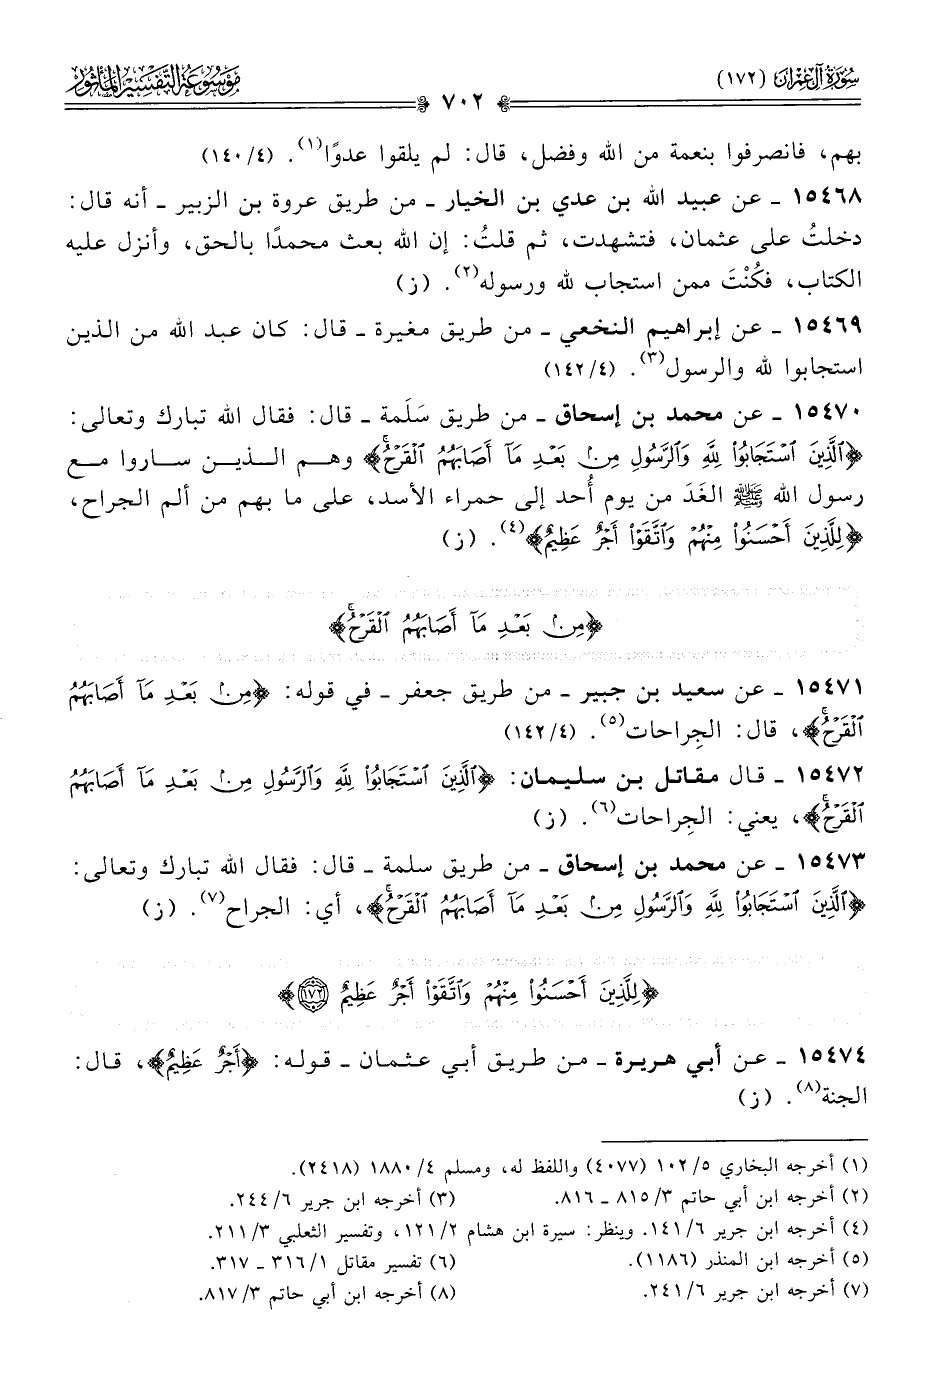 سُورَةُ آلِ عِمْرَان (١٧٢)
٧٠٢
مَوْسُوعَةُ التَّفْسِيرِ المَأْثُور
بهم، فانصرفوا بنعمة من الله وفضل، قال: لم يلقوا عدوًا(١). (١٤٠/٤)
١٥٤٦٨ ـ عن عبيد الله بن عدي بن الخيار ـ من طريق عروة بن الزبير ـ أنه قال:
دخلتُ على عثمان، فتشهدت، ثم قلتُ: إن الله بعث محمدًا بالحق، وأنزل عليه
الكتاب، فكُنْتَ ممن استجاب لله ورسوله(٢). (ز)
١٥٤٦٩ ـ عن إبراهيم النخعي ـ من طريق مغيرة ـ قال: كان عبد الله من الذين
استجابوا لله والرسول(٣). (١٤٢/٤)
١٥٤٧٠ ـ عن محمد بن إسحاق ـ من طريق سَلَمة ـ قال: فقال الله تبارك وتعالى:
﴿ٱلَّذِينَ ٱسۡتَجَابُواْ لِلَّهِ وَٱلرَّسُولِ مِنۢ بَعۡدِ مَآ أَصَابَهُمُ ٱلۡقَرۡحُۚ﴾ وهم الذين ساروا مع
رسول الله ﷺ الغَدَ من يوم أُحد إلى حمراء الأسد، على ما بهم من ألم الجراح،
﴿لِلَّذِينَ أَحۡسَنُواْ مِنۡهُمۡ وَٱتَّقَوۡاْ أَجۡرٌ عَظِيمٌ﴾(٤). (ز)
﴿مِنۢ بَعۡدِ مَآ أَصَابَهُمُ ٱلۡقَرۡحُۚ﴾
١٥٤٧١ ـ عن سعيد بن جبير ـ من طريق جعفر ـ في قوله: ﴿مِنۢ بَعۡدِ مَآ أَصَابَهُمُ
ٱلۡقَرۡحُۚ﴾، قال: الجِراحات(٥). (١٤٢/٤)
١٥٤٧٢ ـ قال مقاتل بن سليمان: ﴿ٱلَّذِينَ ٱسۡتَجَابُواْ لِلَّهِ وَٱلرَّسُولِ مِنۢ بَعۡدِ مَآ أَصَابَهُمُ
ٱلۡقَرۡحُۚ﴾، يعني: الجِراحات(٦). (ز)
١٥٤٧٣ ـ عن محمد بن إسحاق ـ من طريق سلمة ـ قال: فقال الله تبارك وتعالى:
﴿ٱلَّذِينَ ٱسۡتَجَابُواْ لِلَّهِ وَٱلرَّسُولِ مِنۢ بَعۡدِ مَآ أَصَابَهُمُ ٱلۡقَرۡحُۚ﴾، أي: الجراح(٧). (ز)
﴿لِلَّذِينَ أَحۡسَنُواْ مِنۡهُمۡ وَٱتَّقَوۡاْ أَجۡرٌ عَظِيمٌ ١٧٢﴾
١٥٤٧٤ ـ عن أبي هريرة ـ من طريق أبي عثمان ـ قوله: ﴿أَجۡرٌ عَظِيمٌ﴾، قال:
الجنة(٨). (ز)
(١) أخرجه البخاري ١٠٢/٥ (٤٠٧٧) واللفظ له، ومسلم ١٨٨٠/٤ (٢٤١٨).
(٢) أخرجه ابن أبي حاتم ٨١٥/٣ ـ ٨١٦. (٣) أخرجه ابن جرير ٢٤٤/٦.
(٤) أخرجه ابن جرير ١٤١/٦. وينظر: سيرة ابن هشام ١٢١/٢، وتفسير الثعلبي ٢١١/٣.
(٥) أخرجه ابن المنذر (١١٨٦). (٦) تفسير مقاتل ٣١٦/١ ـ ٣١٧.
(٧) أخرجه ابن جرير ٢٤١/٦. (٨) أخرجه ابن أبي حاتم ٨١٧/٣.